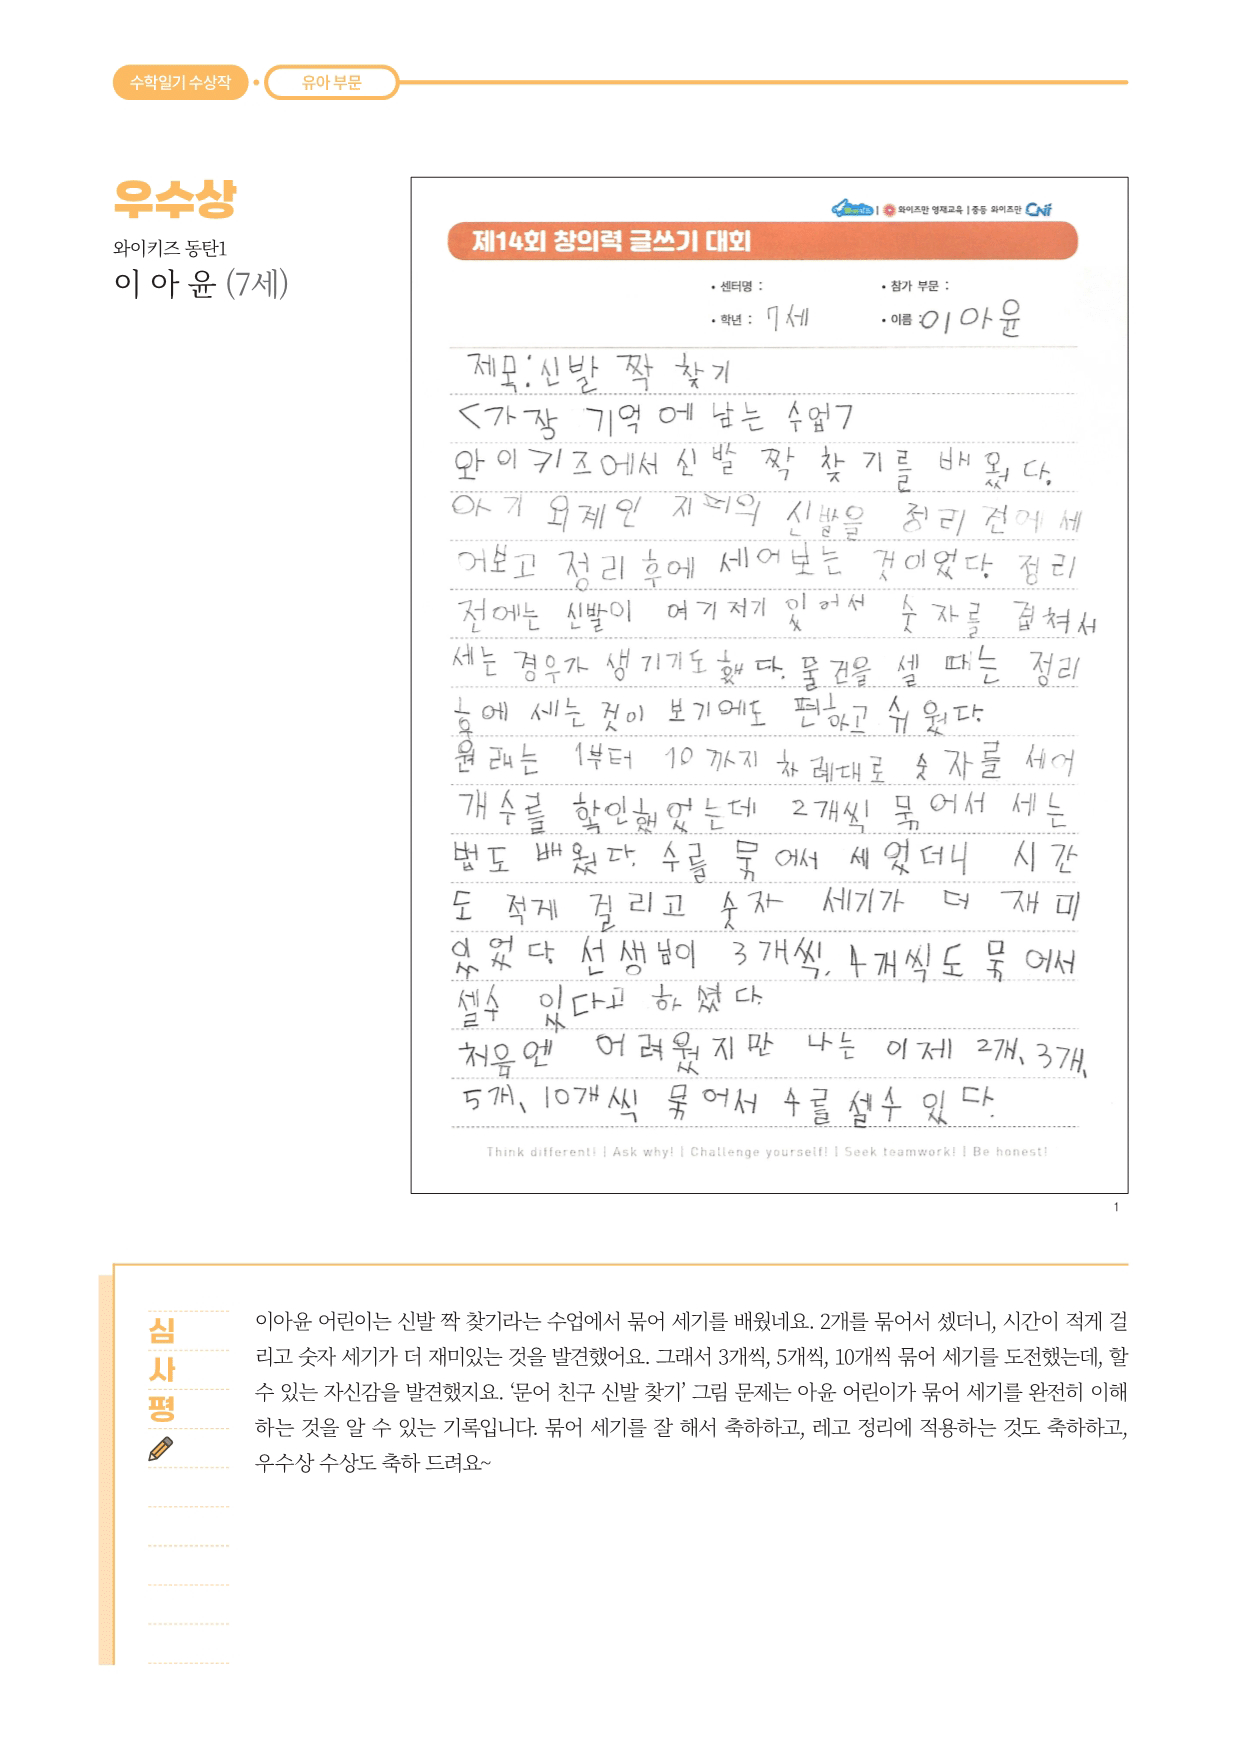 수학일기 수상작 • 유아 부문
우수상
와이키즈 동탄1
이 아 윤 (7세)
와이키즈 | 와이즈만 영재교육 | 중등 와이즈만 CNI
제14회 창의력 글쓰기 대회
• 센터명 : • 참가 부문 :
• 학년 : 7세 • 이름 : 이아윤
제목:신발 짝 찾기
<가장 기억에 남는 수업>
와이키즈에서 신발 짝 찾기를 배웠다.
아기 외계인 지퍼의 신발을 정리 전에 세
어보고 정리 후에 세어보는 것이었다. 정리
전에는 신발이 여기저기 있어서 숫자를 겹쳐서
세는 경우가 생기기도 했다. 물건을 셀 때는 정리
후에 세는 것이 보기에도 편하고 쉬웠다.
원래는 1부터 10까지 차례대로 숫자를 세어
개수를 확인했었는데 2개씩 묶어서 세는
법도 배웠다. 수를 묶어서 세었더니 시간
도 적게 걸리고 숫자 세기가 더 재미
있었다. 선생님이 3개씩, 4개씩도 묶어서
셀수 있다고 하셨다.
처음엔 어려웠지만 나는 이제 2개, 3개,
5개, 10개씩 묶어서 수를 셀수 있다.
Think different! | Ask why! | Challenge yourself! | Seek teamwork! | Be honest!
1
심
사
평
이아윤 어린이는 신발 짝 찾기라는 수업에서 묶어 세기를 배웠네요. 2개를 묶어서 셌더니, 시간이 적게 걸
리고 숫자 세기가 더 재미있는 것을 발견했어요. 그래서 3개씩, 5개씩, 10개씩 묶어 세기를 도전했는데, 할
수 있는 자신감을 발견했지요. ‘문어 친구 신발 찾기’ 그림 문제는 아윤 어린이가 묶어 세기를 완전히 이해
하는 것을 알 수 있는 기록입니다. 묶어 세기를 잘 해서 축하하고, 레고 정리에 적용하는 것도 축하하고,
우수상 수상도 축하 드려요~